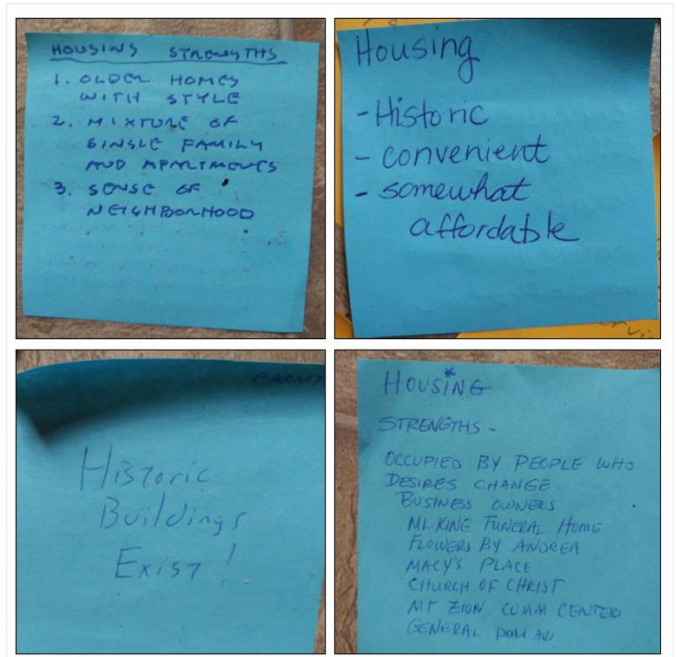 HOUSING STRENGTHS
1. OLDER HOMES
WITH STYLE
2. MIXTURE OF
SINGLE FAMILY
AND APARTMENTS
3. SENSE OF
NEIGHBORHOOD
Housing
- Historic
- convenient
- somewhat
affordable
FRONT
Historic
Buildings
Exist!
HOUSING
STRENGTHS -
OCCUPIED BY PEOPLE WHO
DESIRES CHANGE.
BUSINESS OWNERS
ML KING FUNERAL HOME
FLOWERS BY ANDREA
MACY'S PLACE
CHURCH OF CHRIST
MT ZION COMM CENTER
GENERAL DOLLAR